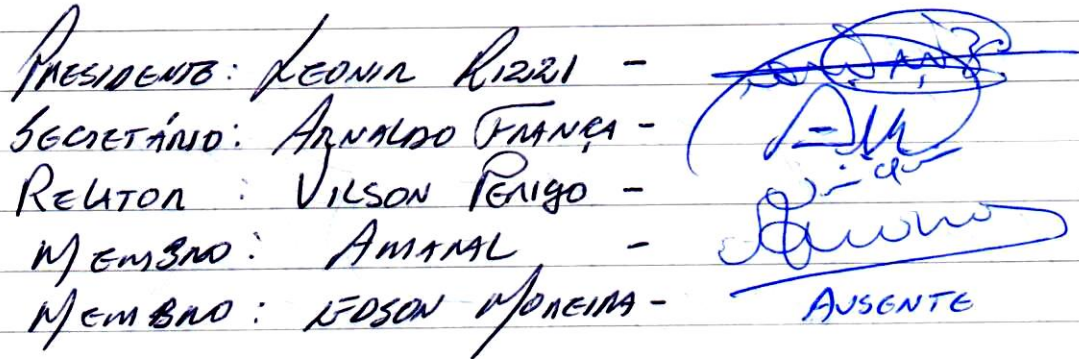 PRESIDENTE: LEONIR RIZZI -
SECRETÁRIO: ARNALDO FRANÇA -
RELATOR : VILSON PERIGO -
MEMBRO : AMARAL -
MEMBRO : EDSON MOREIRA - AUSENTE